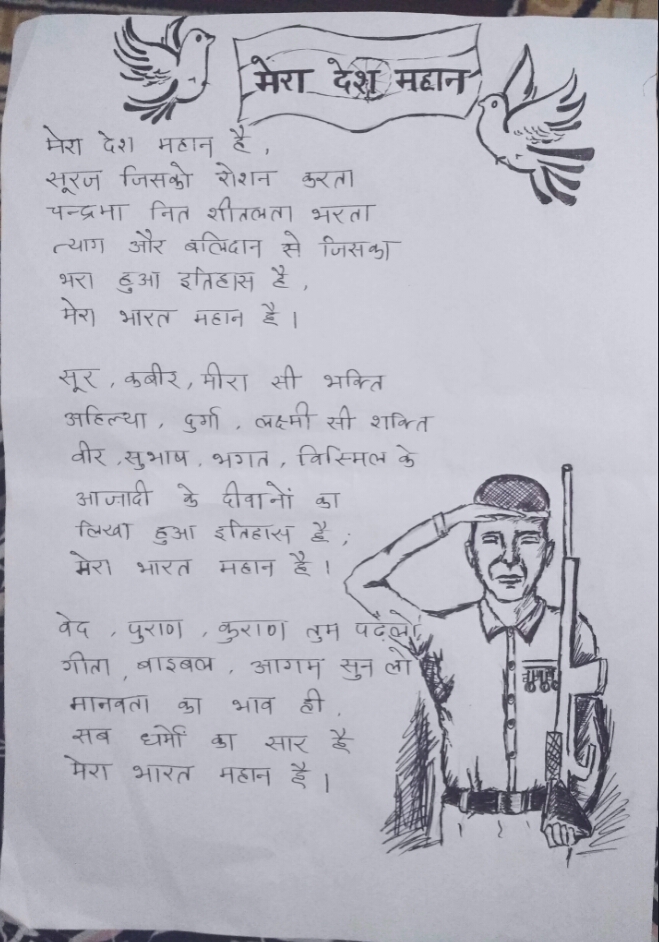 मेरा देश महान
मेरा देश महान है,
सूरज जिसको रोशन करता
चन्द्रमा नित शीतलता भरता
त्याग और बलिदान से जिसका
भरा हुआ इतिहास है,
मेरा भारत महान है।
सूर, कबीर, मीरा सी भक्ति
अहिल्या, दुर्गा, लक्ष्मी सी शक्ति
वीर, सुभाष, भगत, विस्मिल के
आजादी के दीवानों का
लिखा हुआ इतिहास है,
मेरा भारत महान है।
वेद, पुराण, कुराण तुम पढ़लो
गीता, बाइबल, आगम सुन लो
मानवता का भाव ही,
सब धर्मों का सार है
मेरा भारत महान है।